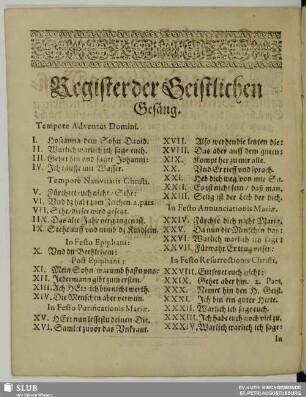 Register der Geistlichen
Gesäng.
Tempore Adventus Domini.
I. Hosianna dem Sohn David.
II. Warlich warlich ich sage euch.
III. Gehet hin und saget Johanni:
IV. Ich täuffe mit Wasser.
Tempore Nativitatis Christi.
V. Fürchtet euch nicht: Sihe:
VI. Und dz habt zum Zeichen. 2. pars
VII. Sihe, dieser wird gesetzt.
VIII. Das alte Jahr vergangen ist.
IX. Stehe auff und nimb dz Kindlein.
In Festo Epiphani:
X. Und du Bethlehem:
Post Epiphani:
XI. Mein Sohn warumb hastu uns:
XII. Jederman gibt zum ersten.
XIII. Ach HErr ich bin nicht werth.
XIV. Die Menschen aber verwun.
In Festo Purificationis Mariæ.
XV. HErr nun lessestu deinen Die.
XVI. Samlet zuvor das Unkraut.
XVII. Also werden die letzten die:
XVIII. Das aber auff dem guten:
XIX. Kompt her zu mir alle.
XX. Und Er rieff und sprach.
XXI. Heb dich weg von mir Sa.
XXII. Es ist nicht fein, daß man.
XXIII. Selig ist der Leib der dich.
In Festo Annunciationis Mariæ.
XXIV. Fürchte dich nicht Maria.
XXV. Da nun die Menschen das:
XXVI. Warlich warlich ich sage:
XXVII. Fürwahr Er trug unser:
In Festo Resurrectionis Christi.
XXVIII. Entsetzet euch nicht:
XXIX. Gehet aber hin. 2. Part.
XXX. Nemet hin den H. Geist.
XXXI. Ich bin ein guter Hirte.
XXXII. Warlich ich sage euch.
XXXIII. Ich hab euch noch viel zu.
XXXIV. Warlich warlich ich sage:
In
SLUB
Wir führen Wissen.
EV.-LUTH. KIRCHGEMEINDE
ST. PETRI AUGUSTUSBURG